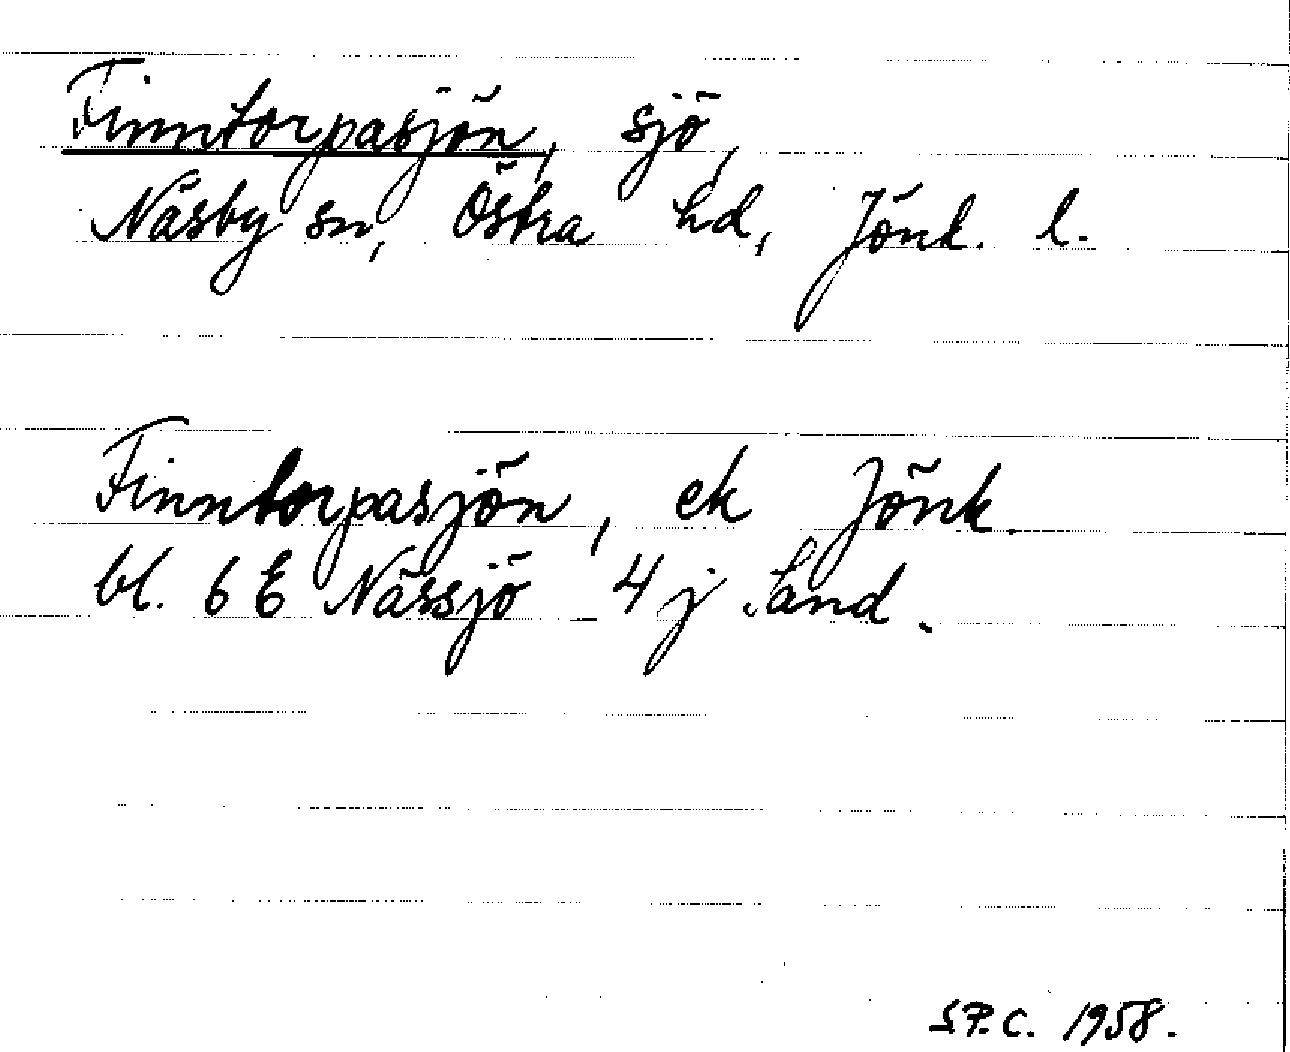 Finntorpasjön, sjö,
Näsby sn, Östra hd, Jönk. l.
Finntorpasjön, ek Jönk.
bl. 6 E Nässjö 4 j Sand.
S.P.C. 1958.